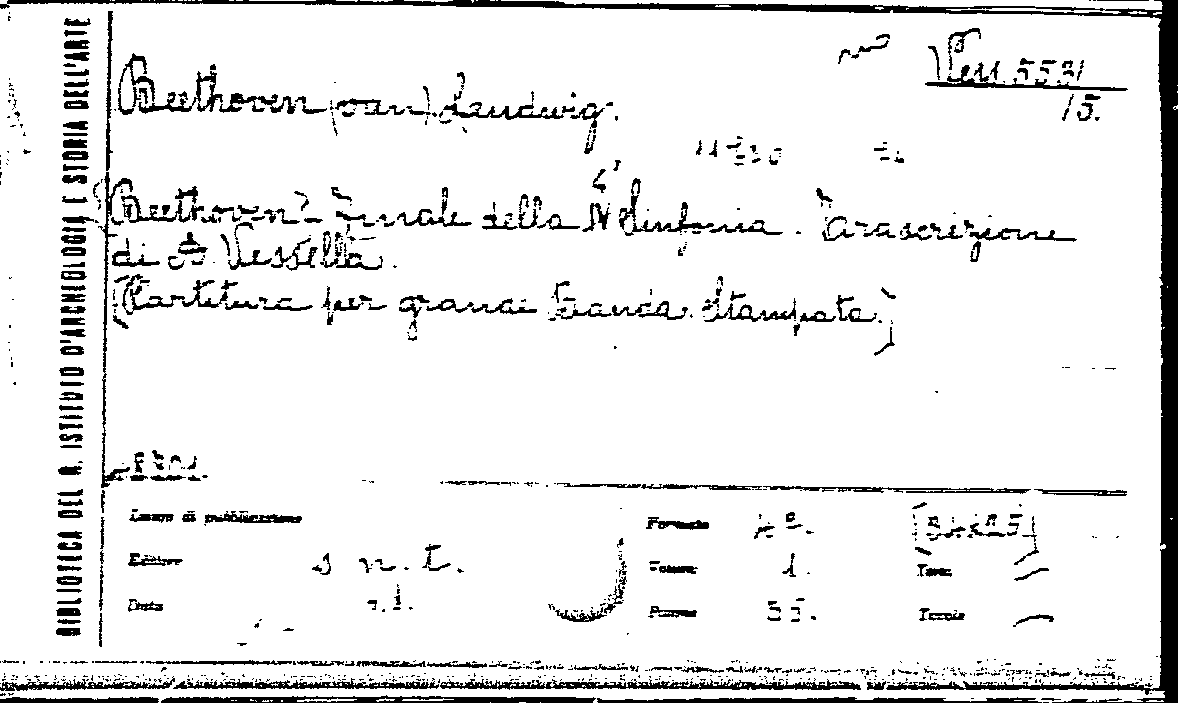 BIBLIOTECA DEL R. ISTITUTO D'ARCHEOLOGIA E STORIA DELL'ARTE
Vess. 5531
15.
Beethoven (van) Laudwig.
Beethoven - Finale della IV Sinfonia. Trascrizione
di A. Vessella.
[Partitura per grande Banda. Stampata.]
Luogo di pubblicazione
Formato 4º.
Editore s. n. t.
Volumi 1.
Tom.
Data
Pagine 55.
Tavole